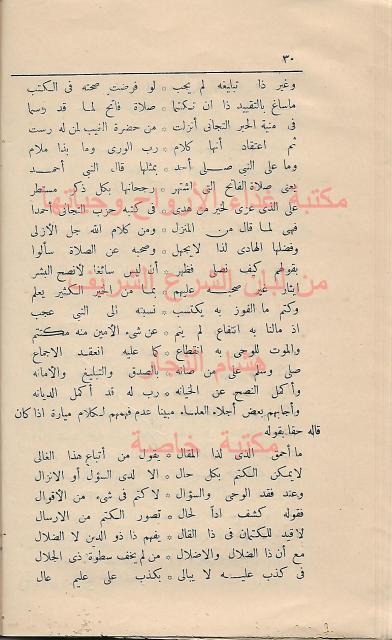 ٣٠
وغير ذا تبليغه لم يجب * لو فرضت صحته فى الكتب
ماساغ بالتقييد ذا ان نكتما * صلاة فاتح لما قد رسما
فى منية الحبر التجانى أنزلت * من حضرة الغيب لمن له رست
ثم اعتقاد أنها كلام * رب الورى وما بذا ملام
وما على النبى صلى أحد * بمثلها قاله النبى أحمد
يعنى صلاة الفاتح التى اشتهر * رجحانها بكل ذكر مستطر
على الذى عزى لخير من هدى * فى كتبه حزب التجانى أحمدا
فهى لما قال من المنزل * ومن كلام الله جل الأزلى
وفضلها الهادى لذا لايجهل * وصحبه عن الصلاة سألوا
بقولهم كيف نصلى فظهر * أن ليس سائغا لأنصح البشر
ايثار غير صحبه عليهم * بما من الخير الكثير يعلم
وكتم ما الفوز به يكتسب * نسبته الى النبى عجب
اذ مالنا به انتفاع لم ينم * عن شىء الأمين منه مكتتم
والموت للوحى به انقطاع * كما عليه انعقد الاجماع
صلى وسلم على من صانه * بالصدق والتبليغ والأمانه
وأكمل النصح عن الخيانه * رب له قد أكمل الديانه
وأجابهم بعض أجلاء العلماء مبينا عدم فهمهم لكلام ميارة اذا كان
قاله حقا بقوله
ما أحمق الذى لذا المقال * يقول من أتباع هذا الغالى
لايمكن الكتم بكل حال * الا لدى السؤل أو الانزال
وعند فقد الوحى والسؤال * لا كتم فى شىء من الأقوال
فقوله كشف اذاً لحال * تصور الكتم من الارسال
لاقيد للكتمان فى ذا القال * يفهم ذا ذو الدين لا الضلال
مع أن ذا الضلال والاضلال * من لم يخف سطوة ذى الجلال
فى كذب عليه لا يبالى * بكذب على عليم عال
مكتبة غذاء الأرواح وحياتها
من لبان الشرع الشريف
هشام النجار
مكتبة خاصية